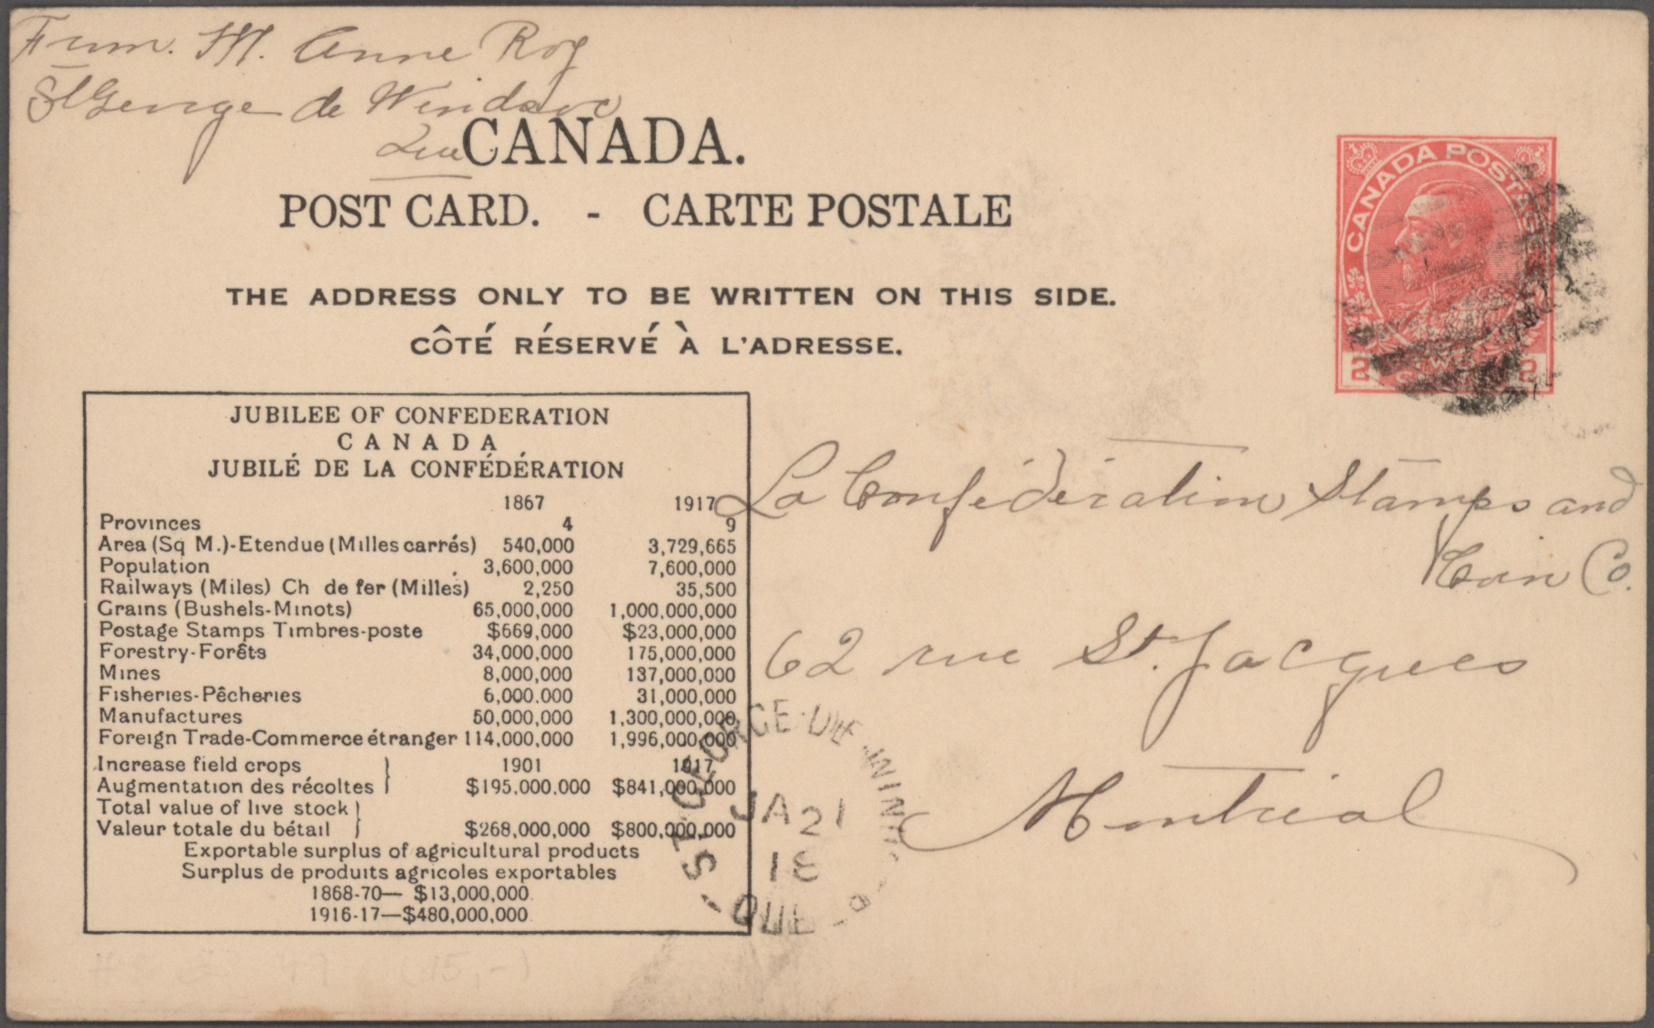 From. M. Anne Roy
St George de Windsor
Que
CANADA.
POST CARD. - CARTE POSTALE
THE ADDRESS ONLY TO BE WRITTEN ON THIS SIDE.
CÔTÉ RÉSERVÉ À L'ADRESSE.
CANADA POSTAGE
2 2
JUBILEE OF CONFEDERATION
CANADA
JUBILÉ DE LA CONFÉDÉRATION
1867 1917
Provinces 4 9
Area (Sq M.)-Etendue (Milles carrés) 540,000 3,729,665
Population 3,600,000 7,600,000
Railways (Miles) Ch de fer (Milles) 2,250 35,500
Grains (Bushels-Minots) 65,000,000 1,000,000,000
Postage Stamps Timbres-poste $669,000 $23,000,000
Forestry-Forêts 34,000,000 175,000,000
Mines 8,000,000 137,000,000
Fisheries-Pêcheries 6,000.000 31,000,000
Manufactures 50,000,000 1,300,000,000
Foreign Trade-Commerce étranger 114,000,000 1,996,000,000
Increase field crops 1901 1917
Augmentation des récoltes $195.000.000 $841,000,000
Total value of live stock
Valeur totale du bétail $268,000,000 $800,000,000
Exportable surplus of agricultural products
Surplus de produits agricoles exportables
1868-70— $13,000,000
1916-17—$480,000,000
La Confédération Stamps and
Coin Co.
62 rue St. Jacques
Montréal
ST GEORGE DE WIND
JA 21
18
QUE